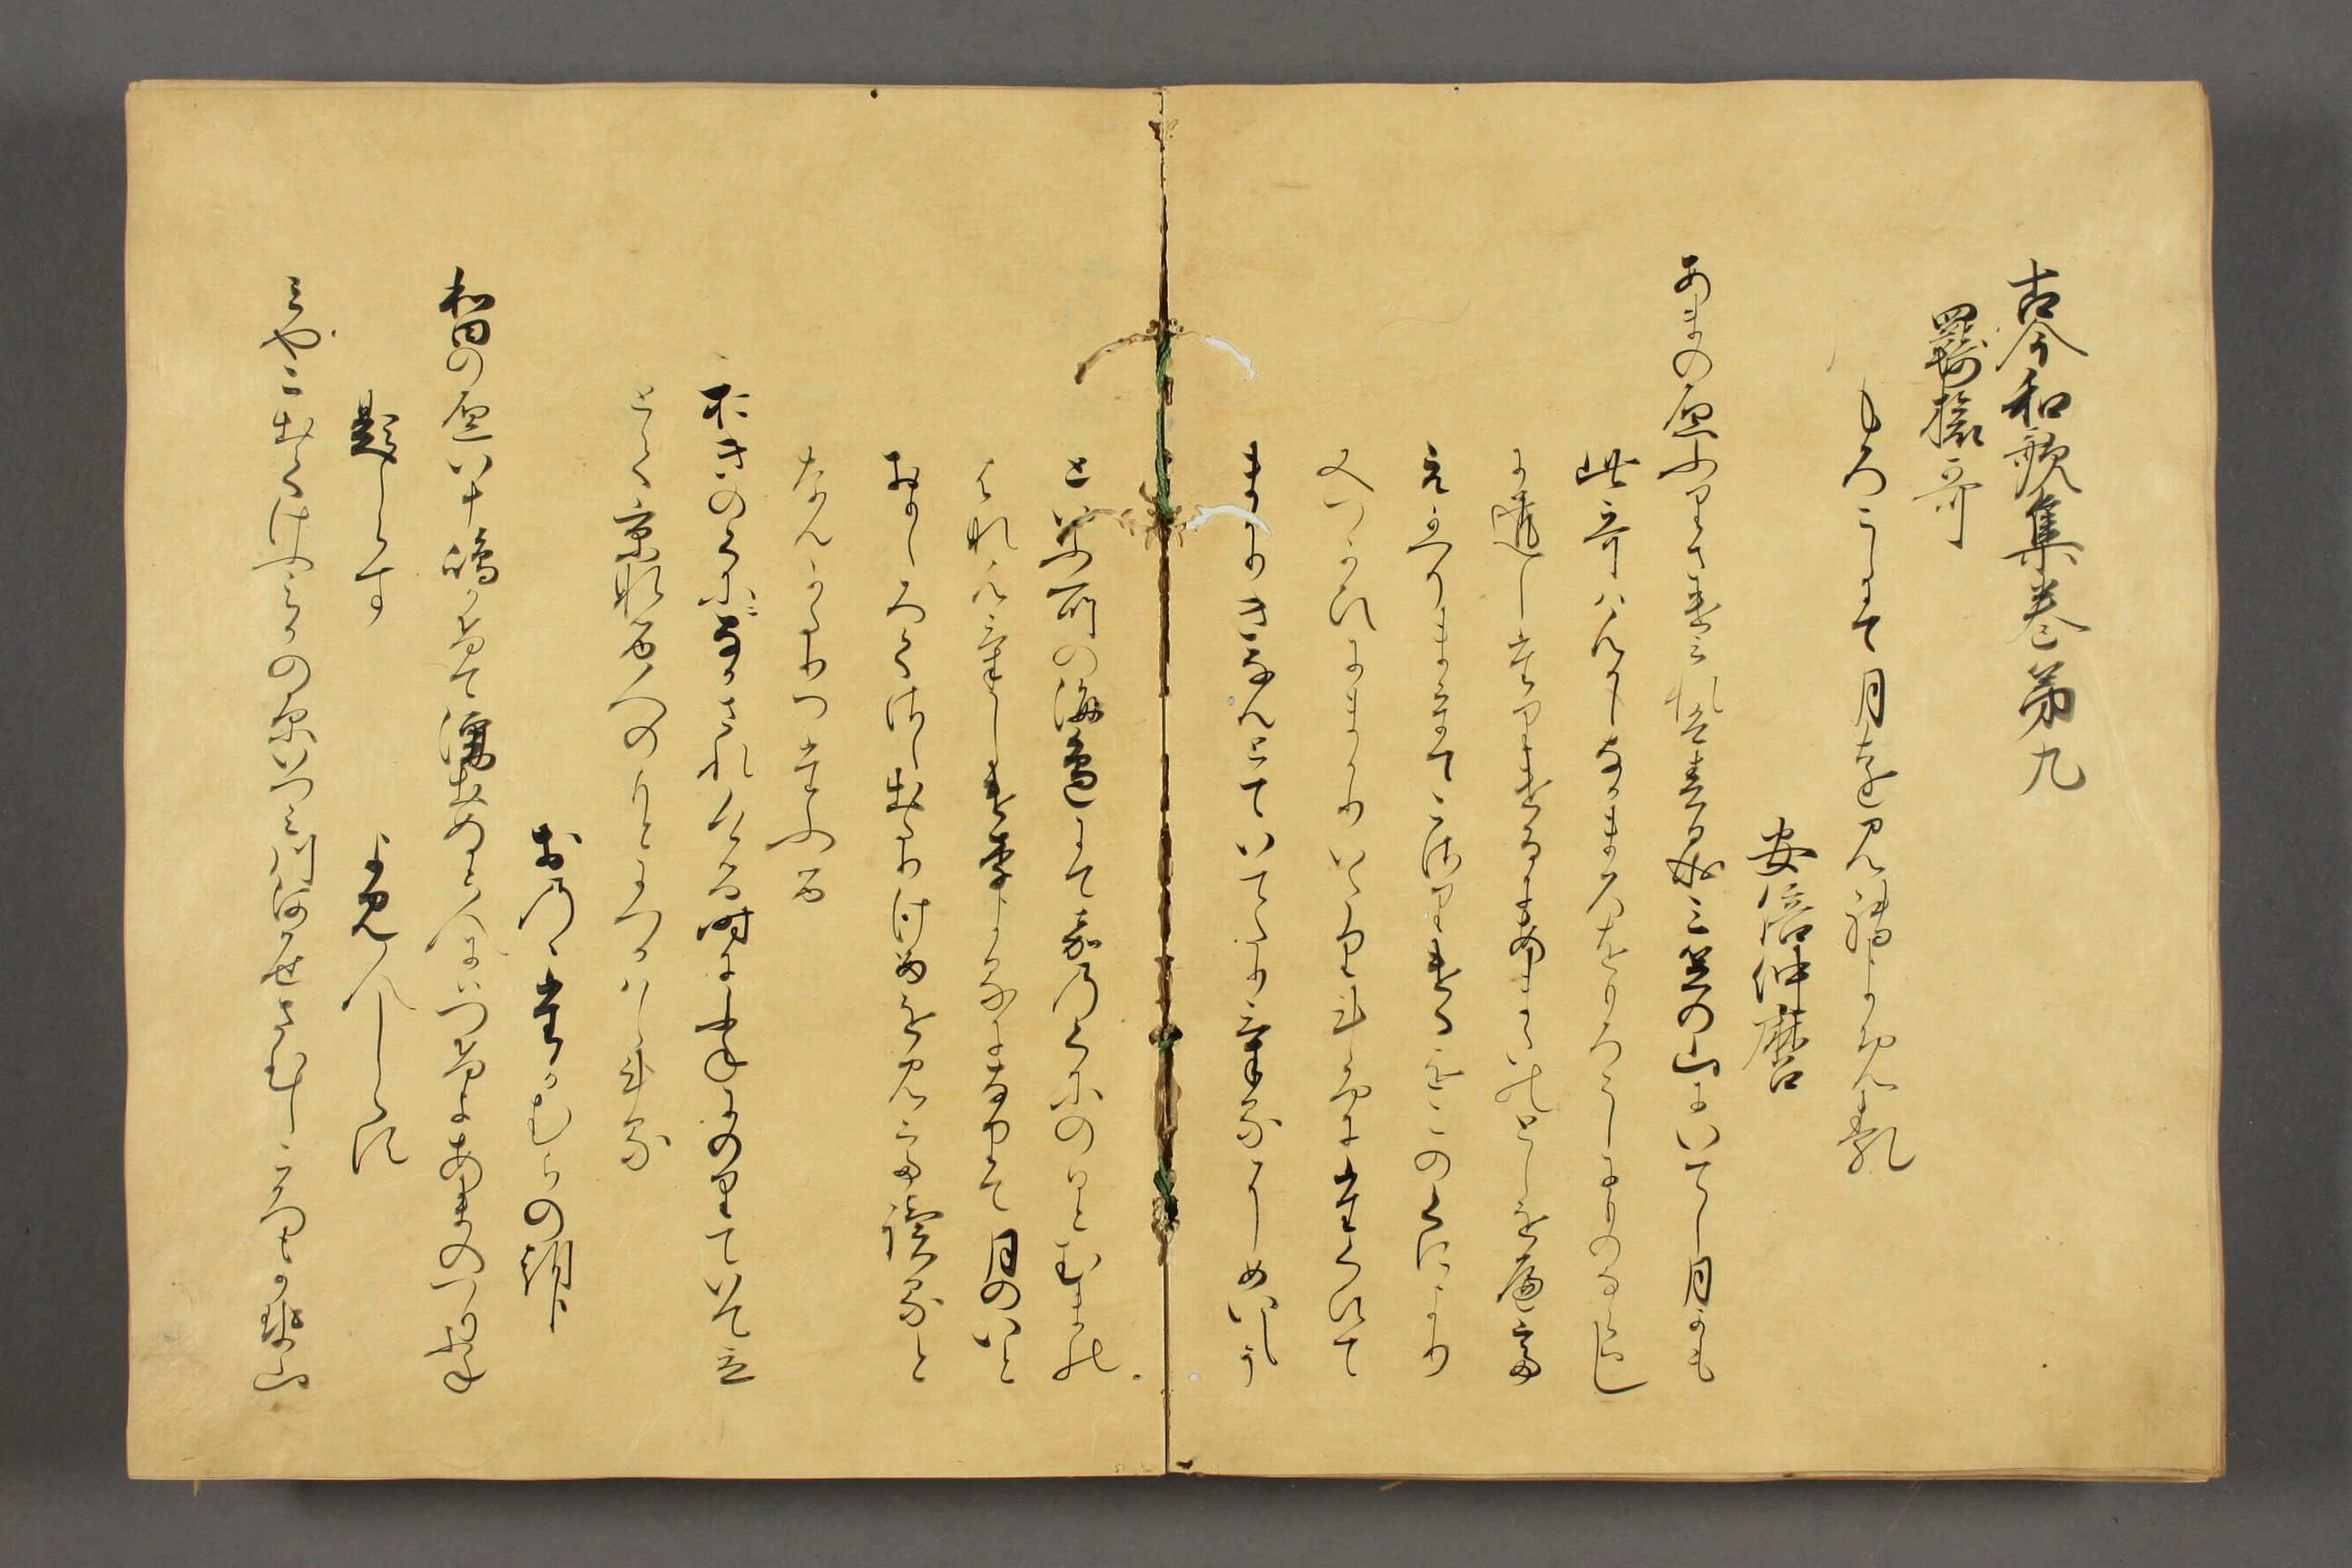 古今和歌集巻第九
羇旅哥
もろこしにて月を見てよみける
安倍仲麿
あまの原ふりさけみれは春日なる三笠の山にいてし月かも
此哥はむかしなかまろをもろこしにものならはし
に遣したりけるにあまたのとしを歴て
えかへりまうてこさりけるをこのくにより
又つかひまかりいたりけるにたくひて
まうてきなんとていてたりけるにめいしう
といふ所の海邉にてかのくにの人むまの
はなむけしけりよるになりて月のいと
おもしろくさし出たりけるを見て讀ると
なんかたりつたふる
おきのくにになかされける時に舟にのりていて立
とて京なる人のもとにつかはしける
おのゝたかむらの朝臣
和田の原八十嶋かけて漕出ぬと人にはつけよあまのつり舟
題しらす
よみ人しらす
みやこ出てけふみかの原いつみ川かはかせさむし衣かせ山